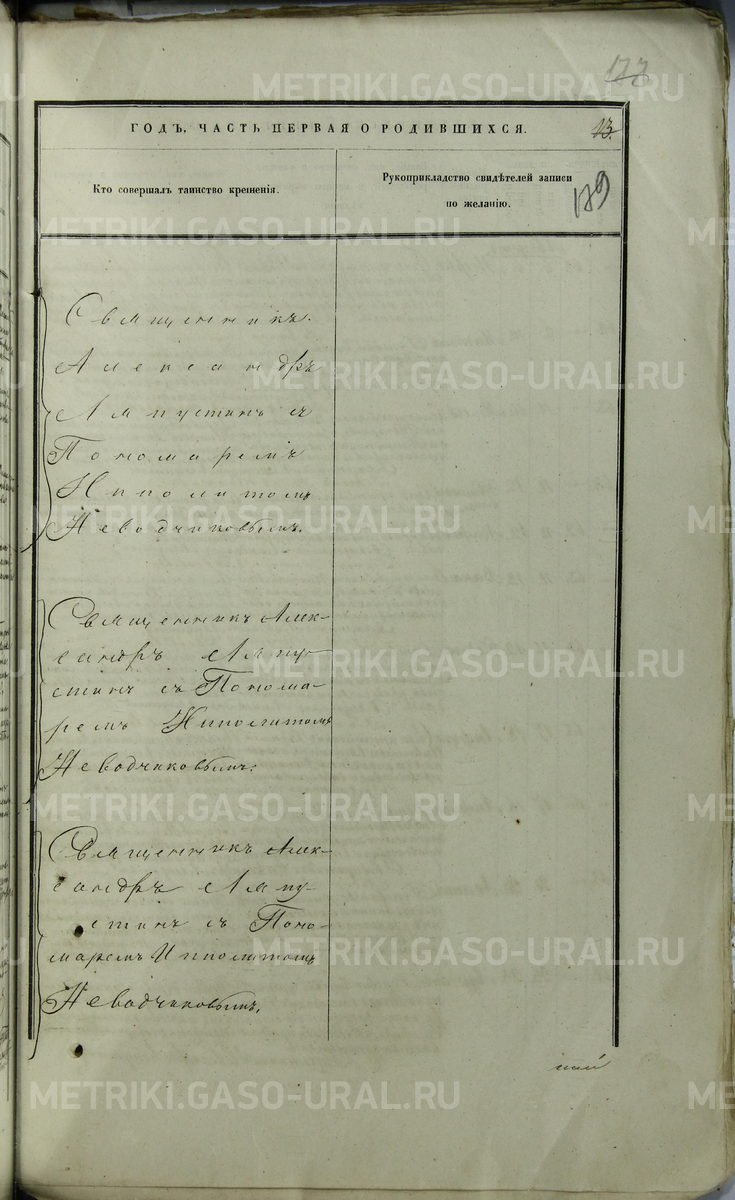 177
ГОДЪ, ЧАСТЬ ПЕРВАЯ О РОДИВШИХСЯ.
13.
Кто совершалъ таинство крещенія.
Рукоприкладство свидѣтелей записи
по желанію.
179
Священникъ
Александръ
Ляпустинъ съ
Пономаремъ
Ипполитомъ
Неводчиковымъ.
Священникъ Алек-
сандръ Ляпу-
стинъ съ Понома-
ремъ Ипполитомъ
Неводчиковымъ.
Священникъ Алек-
сандръ Ляпу-
стинъ съ Поно-
маремъ Ипполитомъ
Неводчиковымъ.
METRIKI.GASO-URAL.RU